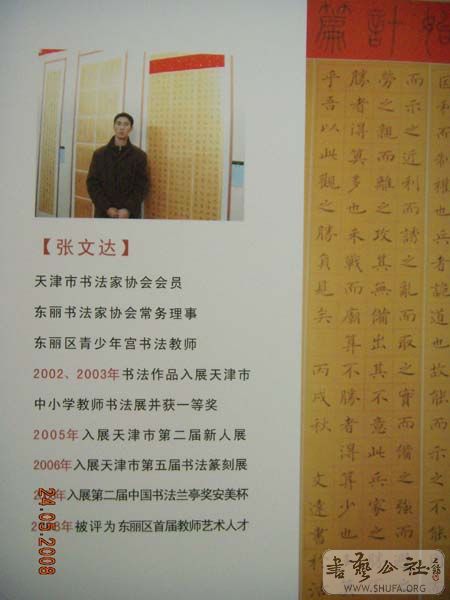 【张文达】
天津市书法家协会会员
东丽书法家协会常务理事
东丽区青少年宫书法教师
2002、2003年书法作品入展天津市
中小学教师书法展并获一等奖
2005年入展天津市第二届新人展
2006年入展天津市第五届书法篆刻展
年入展第二届中国书法兰亭奖安美杯
8年被评为东丽区首届教师艺术人才
始計篇
因利而制權也兵者詭道也故能而示之不
而示之近利而誘之亂而取之實而備之強而
勞之親而離之攻其無備出其不意此兵家之
勝者得算多也未戰而廟算不勝者得算少也
乎吾以此觀之勝負見矣 丙戌秋 文達書於
24.05.2008
書藝公社
WWW.SHUFA.ORG